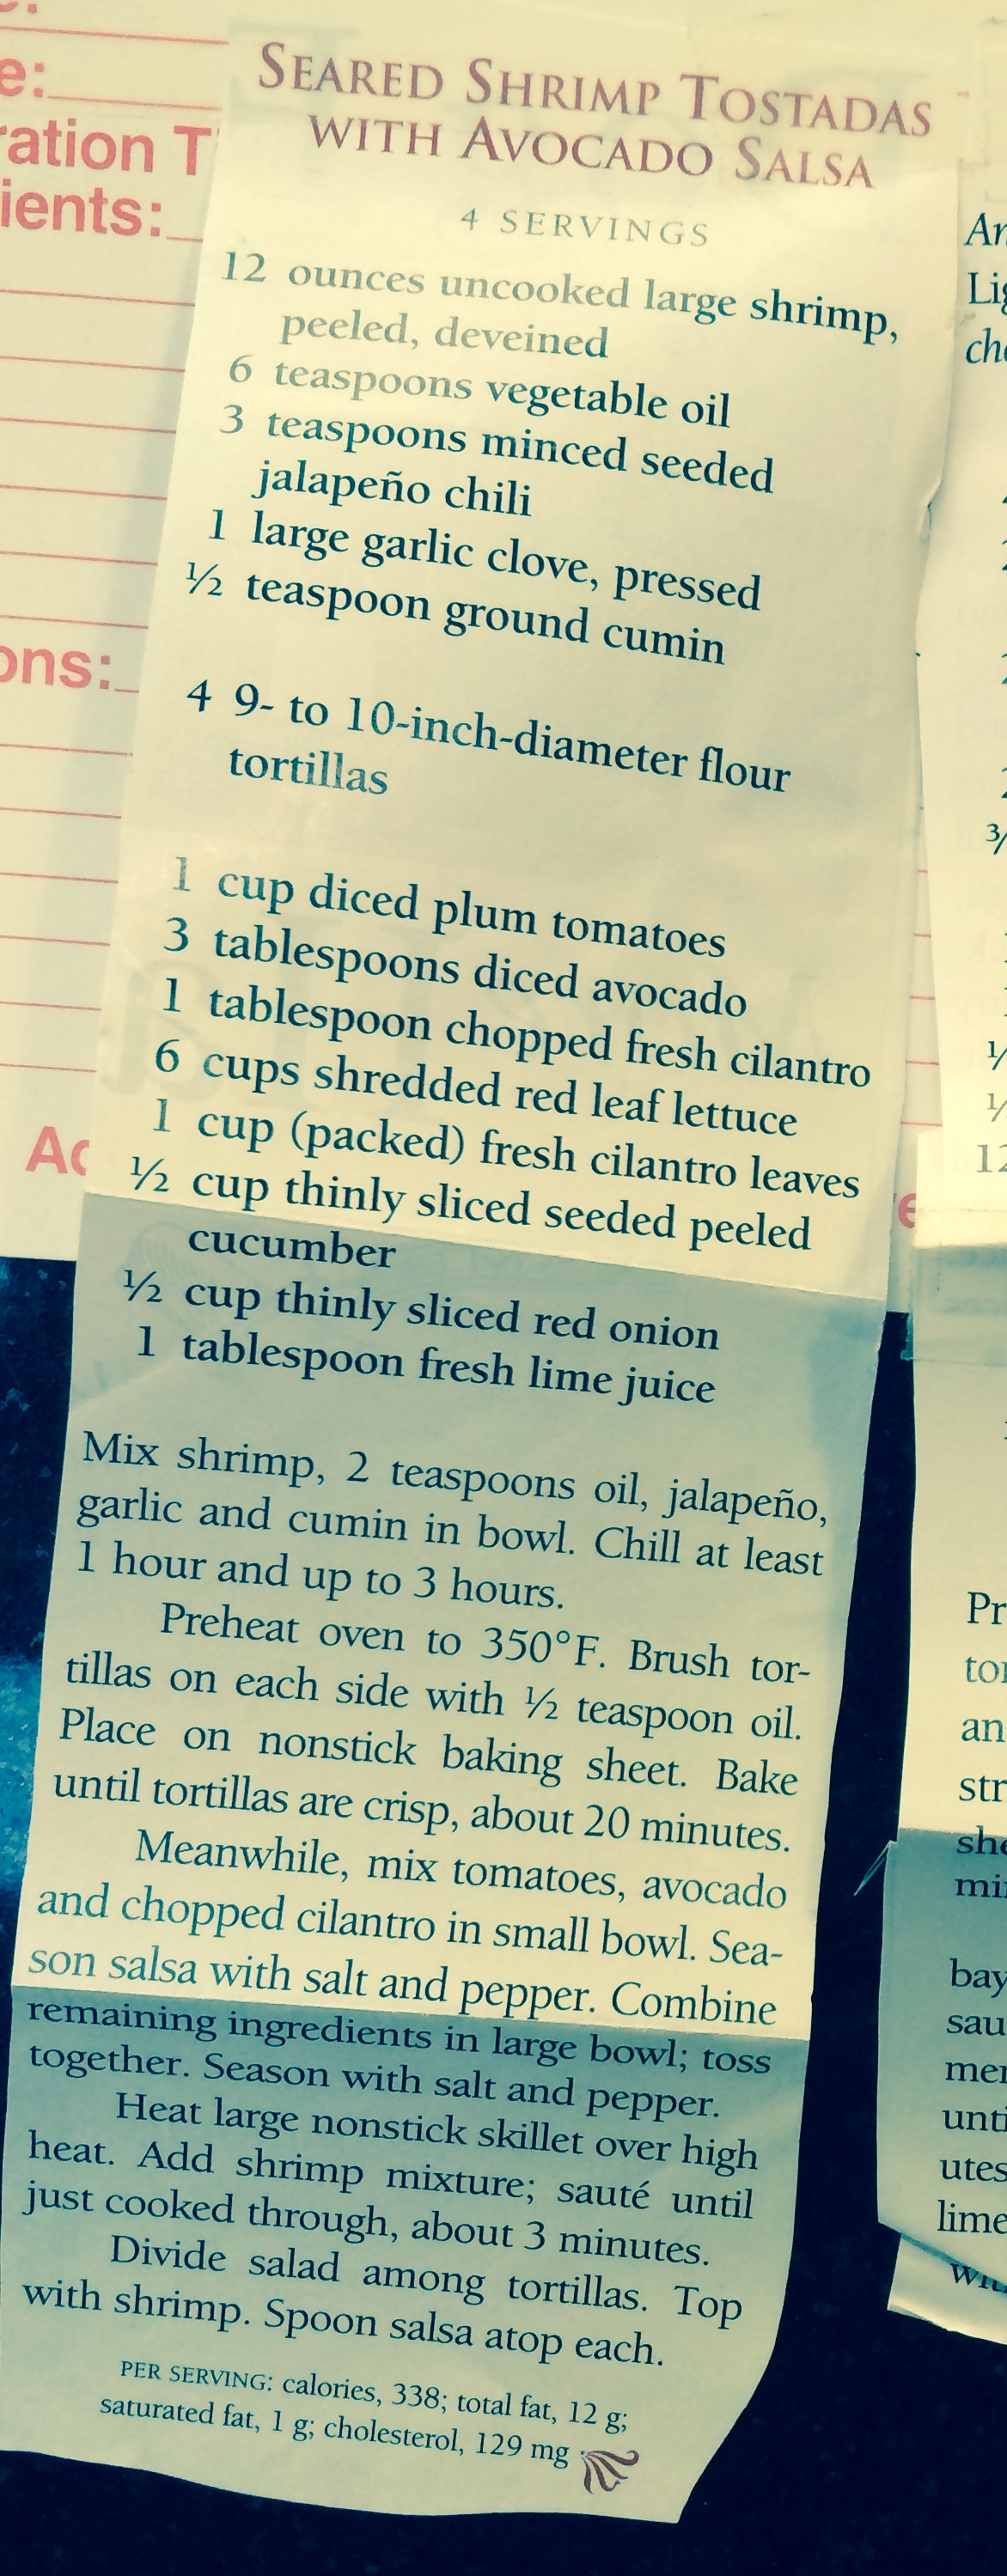 e:
ration T
ients:
ons:
SEARED SHRIMP TOSTADAS
WITH AVOCADO SALSA
4 SERVINGS
12 ounces uncooked large shrimp,
peeled, deveined
6 teaspoons vegetable oil
3 teaspoons minced seeded
jalapeño chili
1 large garlic clove, pressed
½ teaspoon ground cumin
4 9- to 10-inch-diameter flour
tortillas
1 cup diced plum tomatoes
3 tablespoons diced avocado
1 tablespoon chopped fresh cilantro
6 cups shredded red leaf lettuce
1 cup (packed) fresh cilantro leaves
½ cup thinly sliced seeded peeled
cucumber
½ cup thinly sliced red onion
1 tablespoon fresh lime juice
Mix shrimp, 2 teaspoons oil, jalapeño,
garlic and cumin in bowl. Chill at least
1 hour and up to 3 hours.
Preheat oven to 350°F. Brush tor-
tillas on each side with ½ teaspoon oil.
Place on nonstick baking sheet. Bake
until tortillas are crisp, about 20 minutes.
Meanwhile, mix tomatoes, avocado
and chopped cilantro in small bowl. Sea-
son salsa with salt and pepper. Combine
remaining ingredients in large bowl; toss
together. Season with salt and pepper.
Heat large nonstick skillet over high
heat. Add shrimp mixture; sauté until
just cooked through, about 3 minutes.
Divide salad among tortillas. Top
with shrimp. Spoon salsa atop each.
PER SERVING: calories, 338; total fat, 12 g;
saturated fat, 1 g; cholesterol, 129 mg
Lig
che
12
Pr
tor
an
str
she
mi
bay
sau
mer
unti
utes
lime